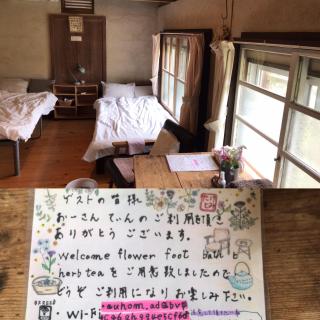 ゲストの皆様
おーさんてぃんのご利用頂き
ありがとうございます。
welcome flower foot bath と
herb tea をご用意致しましたので
どうぞご利用になりお楽しみ下さい。
・Wi-Fi